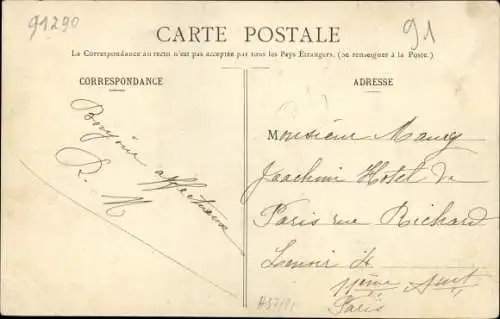 91290
91
CARTE POSTALE
La Correspondance au recto n'est pas acceptée par tous les Pays Étrangers. (Se renseigner à la Poste.)
CORRESPONDANCE
Bonjour affectueux
R. M
ADRESSE
Monsieur Maury
Joachim Hotel de
Paris rue Richard
Lenoir 
11ème
Paris